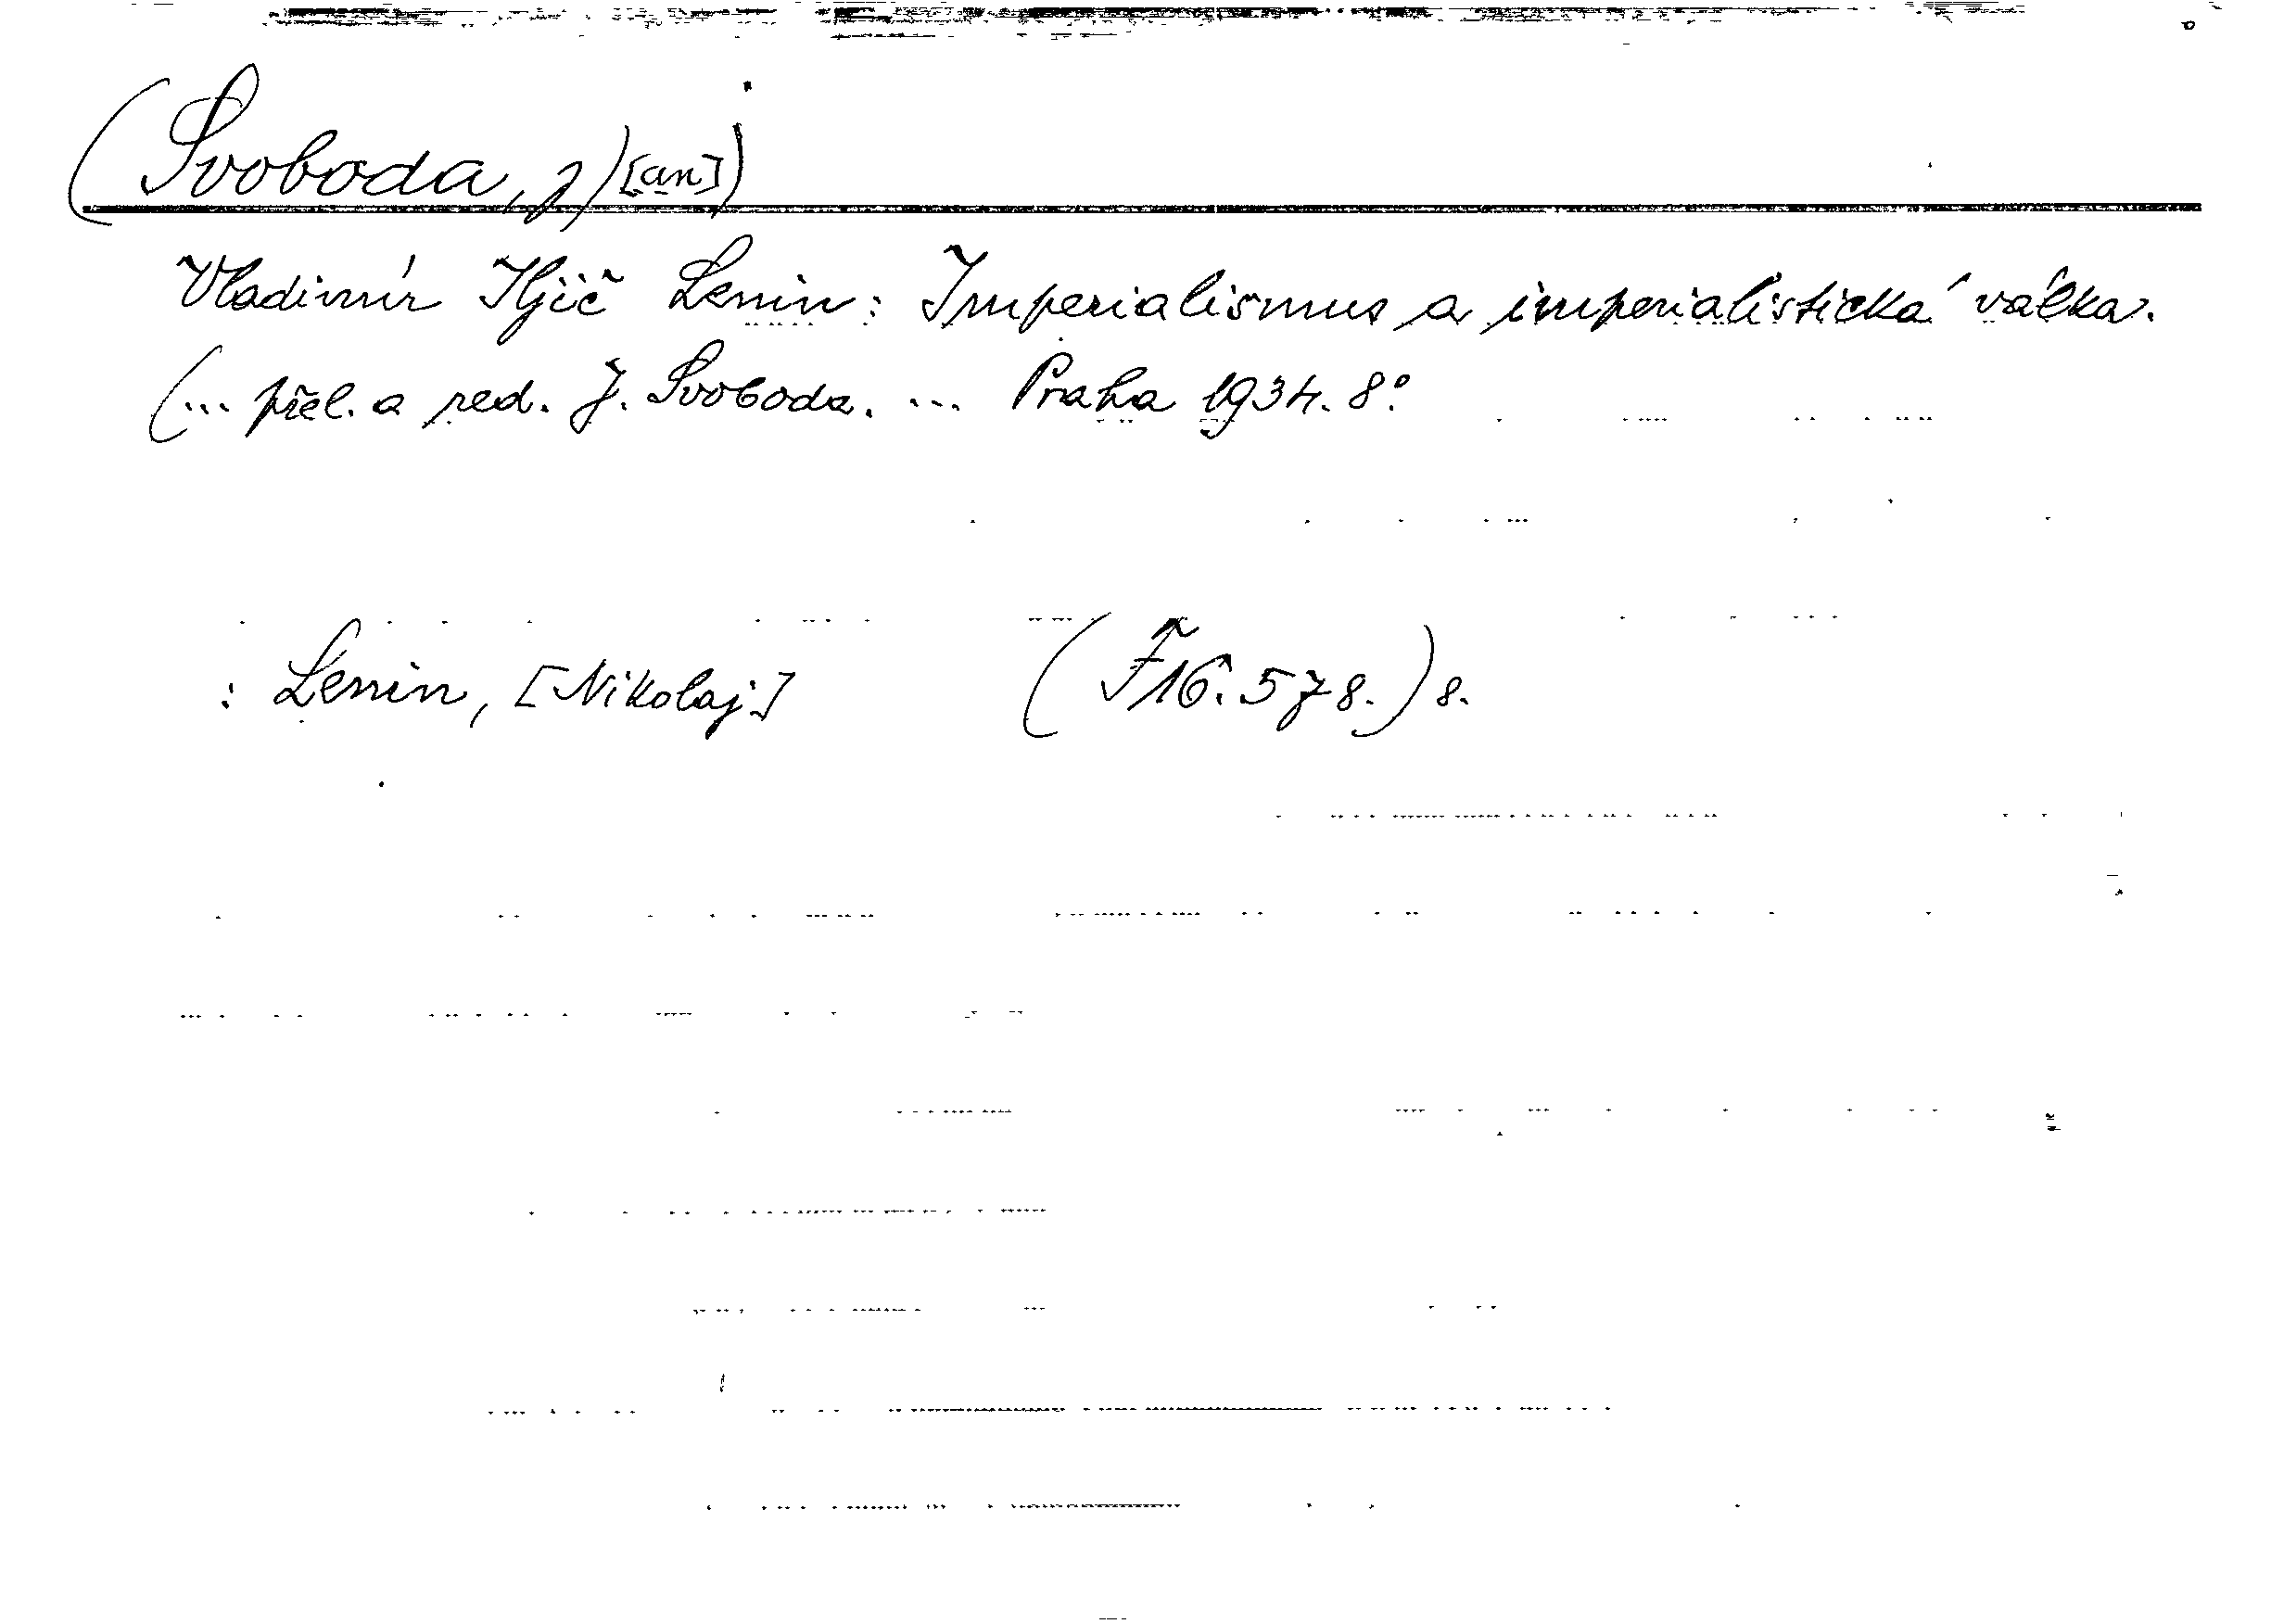 (Svoboda, J)[an])
Vladimír Iljič Lenin: Imperialismus a imperialistická válka.
(... přel. a red. J. Svoboda. ... Praha 1934. 8°
: Lenin, [Nikolaj] (F 16.578.) 8.